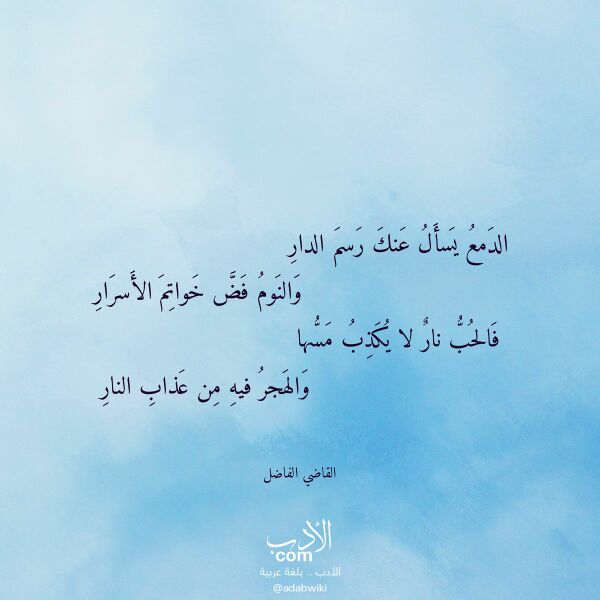 الدَمعُ يَسأَلُ عَنكَ رَسمَ الدارِ
وَالنَومُ فَضَّ خَواتِمَ الأَسرَارِ
فَالحُبُّ نارٌ لا يُكَذِبُ مَسُّها
وَالهَجرُ فيهِ مِن عَذابِ النارِ
القاضي الفاضل
الأدب
com
الأدب .. بلغة عربية
@adabwiki